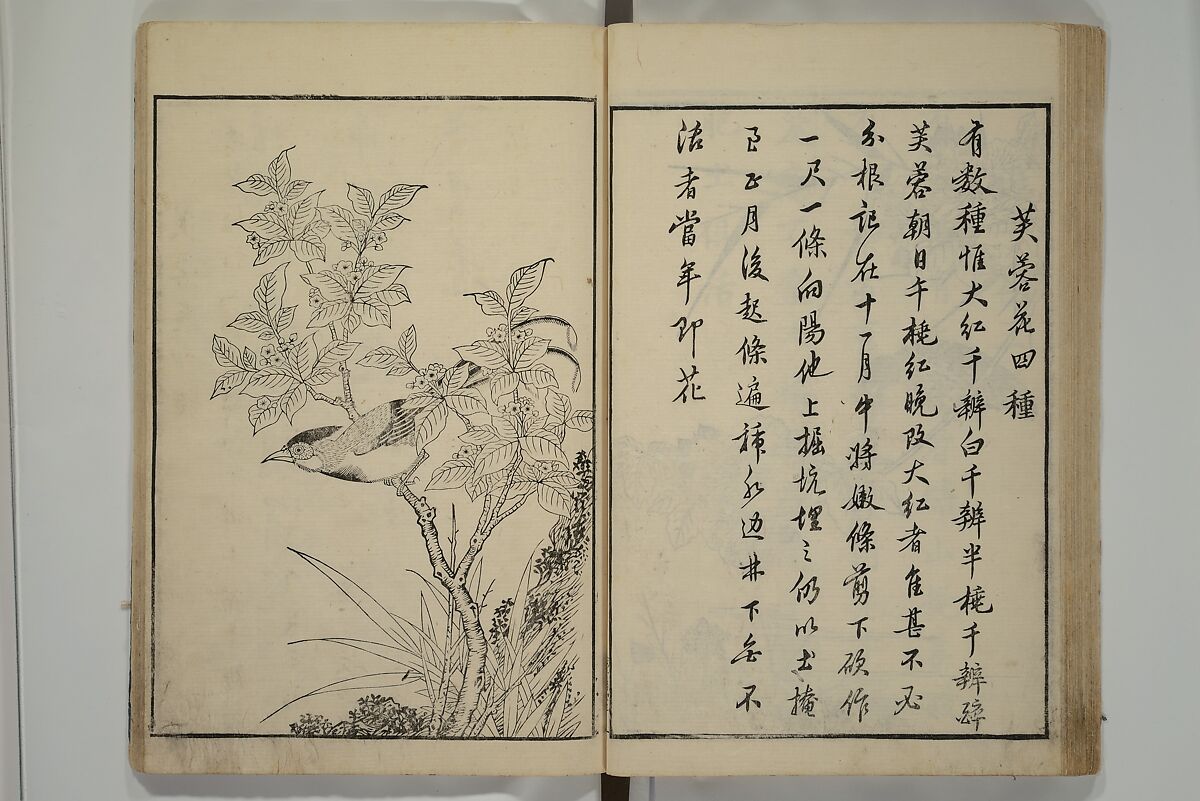 芙蓉花四種
有数種惟大红千辨白千辨半桃千辨碎
芙蓉朝日午桃红晚改大红者佳甚不必
分根記在十一月中将嫩條剪下砍作
一尺一條向陽地上掘坑埋之仍以土掩
至正月後起條遍種水边井下無不
活者當年即花